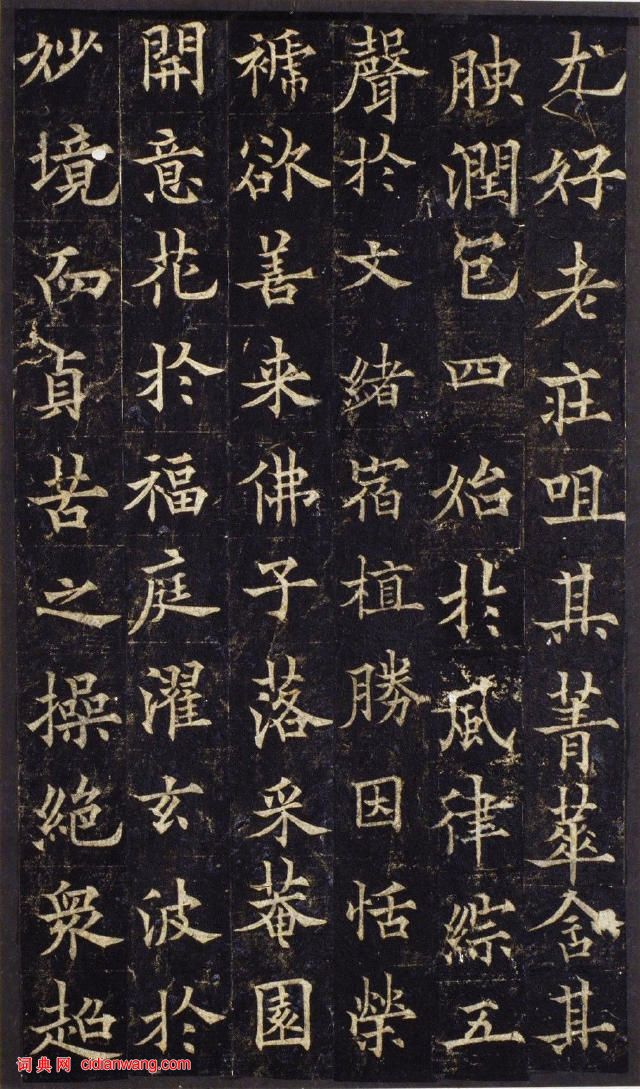 尤好老莊咀其菁華含其
腴潤包四始於風律綜五
聲於文緒宿植勝因恬榮
褫欲善来佛子落采菴園
開意花於福庭濯玄波於
妙境而貞苦之操絶衆超
词典网 cidianwang.com